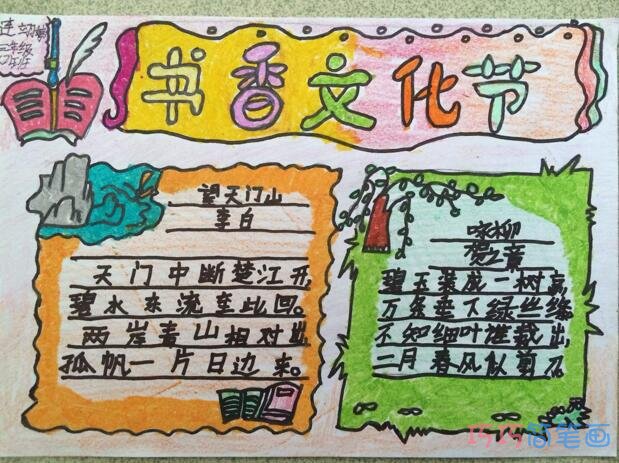 书香文化节
三年级
望天门山
李白
天门中断楚江开
碧水东流至此回。
两岸青山相对出
孤帆一片日边来。
咏柳
贺之章
碧玉装成一树高
万条垂下绿丝绦
不知细叶谁裁出
二月春风似剪刀
巧巧简笔画